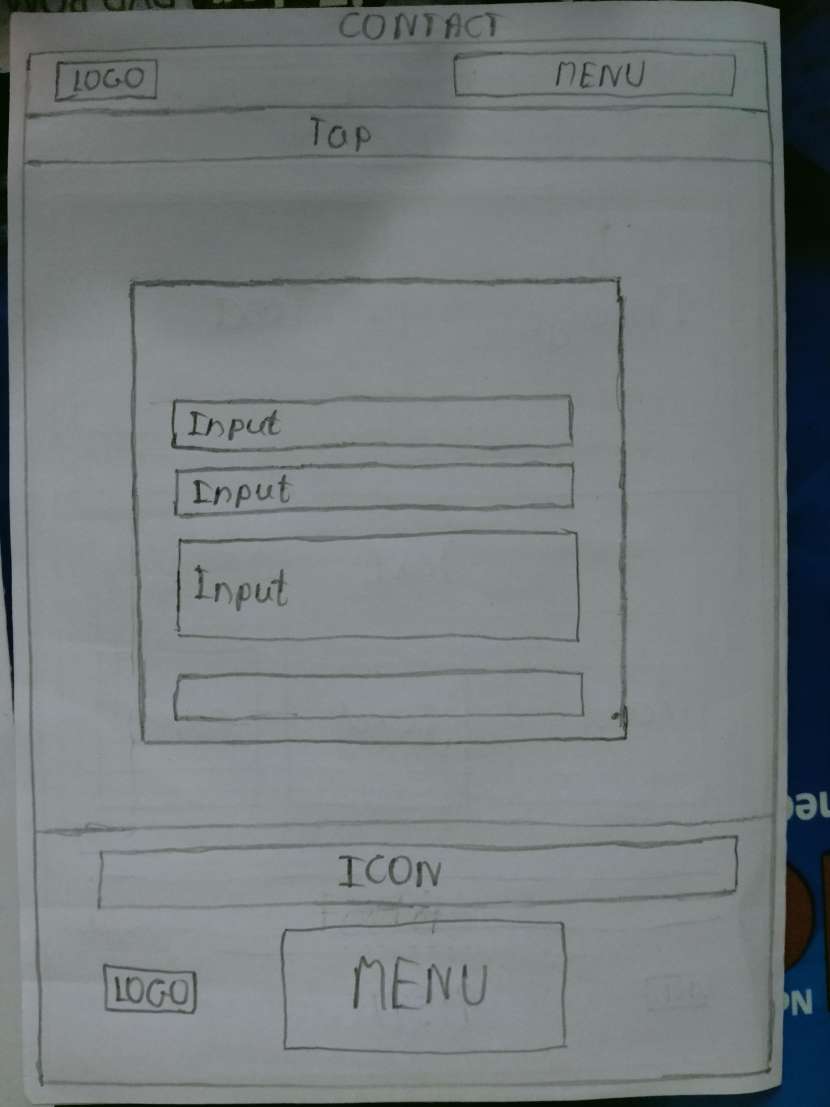 CONTACT
LOGO MENU
TOP
Input
Input
Input
ICON
LOGO MENU